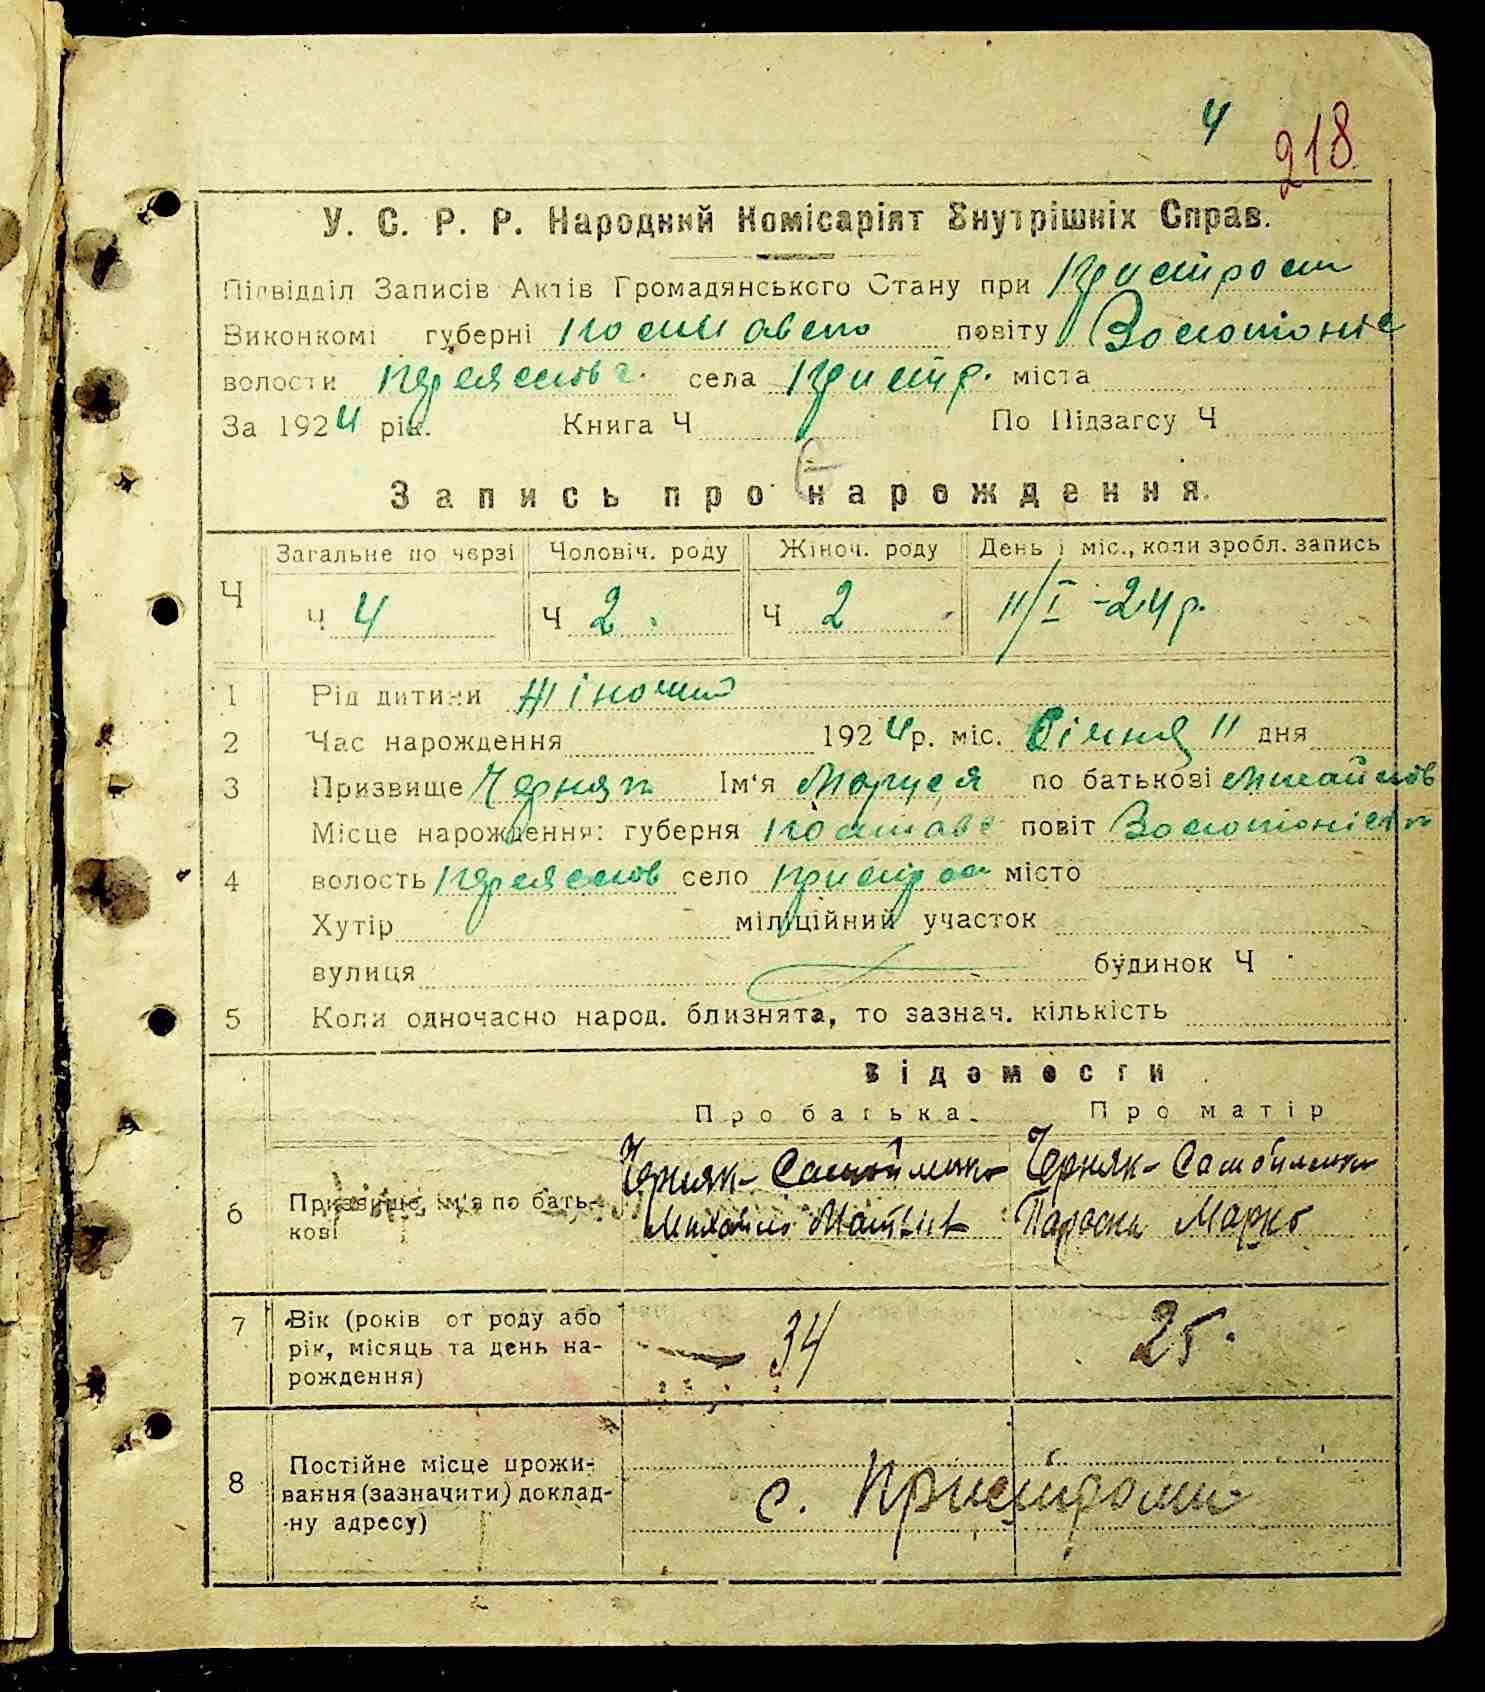 4
218
У. С. Р. Р. Народний Комісаріят Внутрішніх Справ.
Підвідділ Записів Актів Громадянського Стану при Пристром
Виконкомі губерні Полтавсько повіту Золотоніс
волости Переяслов с. села Пристр. міста
За 1924 рік. Книга Ч По Підзагсу Ч
Запись про нарождення.
Ч Загальне по черзі Чоловіч. роду Жіноч. роду День і міс., коли зробл. запись
Ч 4 Ч 2 Ч 2 11/I -24 р.
1 Рід дитини Жіночий
2 Час нарождення 1924 р. міс. Січня 11 дня
3 Призвище Черняк Ім'я Маруся по батькові Михайлов
Місце нарождення: губерня Полтавс повіт Золотоніськ
4 волость Переяслов село Пристром місто
Хутір міліційний участок
вулиця будинок Ч
5 Коли одночасно народ. близнята, то зазнач. кількість
Відомости
Про батька. Про матір
Черняк-Самойленко Черняк-Самойленко
6 Призвище, ім'я по бать-
кові Михайло Матвієв Параска Марко
7 Вік (років от роду або
рік, місяць та день на-
рождення) 34 25.
8 Постійне місце прожи-
вання (зазначити) доклад-
ну адресу) с. Пристроми